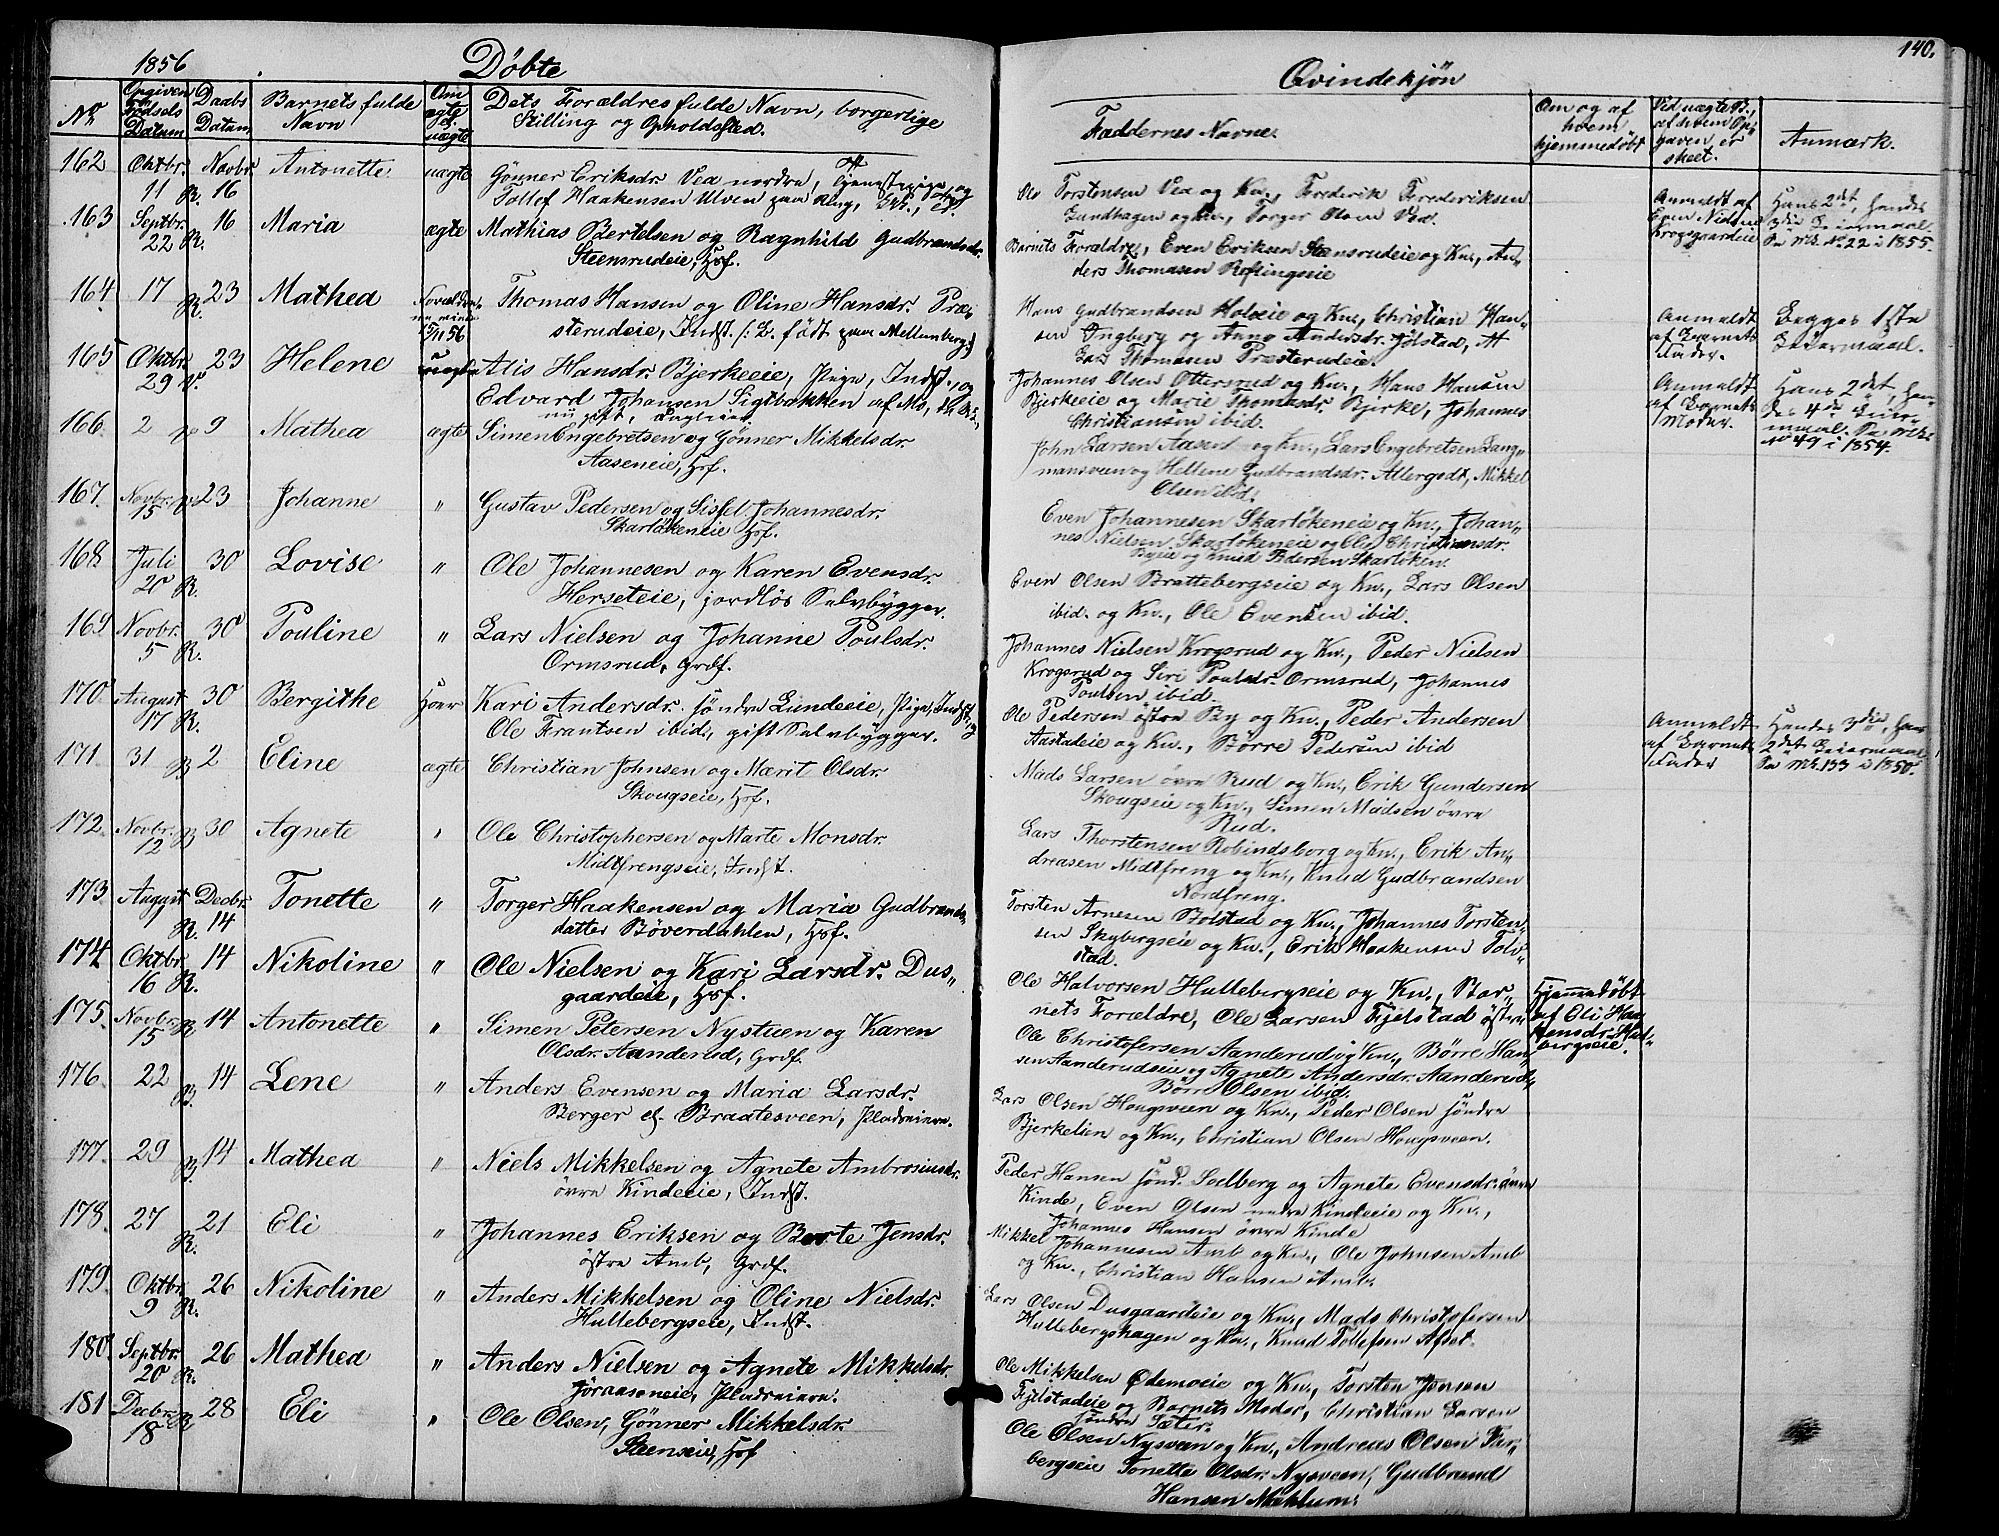 1856
Döbte
Qvindekjön
140.
No
Opgiven Fødsels Datum
Daabs Datum
Barnets fulde Navn
Om ægte el. uægte
Dets Forældres fulde Navn, borgerlige Stilling og Opholdssted.
Faddernes Navne.
Om og af hvem hjemmedøbt
Ved uægte B., af hvem Opgaven er skeet.
Anmærk.
162 Oktbr. 11 R. Novbr. 16 Antonette uægte Gønner Eriksdr. Vea nordre, Tjenestepige og
Tollef Haakensen Ulven paa Ring,
Ole Torstensen Vea og Kn., Frederik Frederiksen
Gundhagen og Kn., Torger Olsen Vea.
Anmeldt af Even Nielsen Krogsgaardeie
Hans 2det, hendes 3die Leiermaal. No. 22 i 1855.
163 Septbr. 22 R. 16 Maria ægte Mathias Bertelsen og Ragnhild Gudbrandsdr.
Steensrudeie, Hsf.
Barnets Forældre, Even Eriksen Steensrudeie og Kn., An-
ders Thomasen Roftingseie
164 17 R. 23 Mathea Thomas Hansen og Oline Hansdr. Præ-
sterudeie, Indst. /: B. født paa Mellumberg :/
15/11 56
Hans Gudbrandsen Holeie og Kn., Christian Han-
sen Ingberg og Anne Andersdr. Jølstad,
Lars Thomasen Præsterudeie.
Anmeldt af Barnets Fader.
Begges 1ste Leiermaal.
165 Oktbr. 29 23 Helene uægte Alis Hansdr. Bjerkeeie, Pige, Indst. og
Edvard Johansen Sigtbakken af Mo,
Johannes Olsen Ottersrud og Kn., Hans Hansen
Bjerkeeie og Marie Thomasdr. Bjerke, Johannes
Christiansen ibid.
Anmeldt af Barnets Moder.
Hans 2det, hendes 4de Leiermaal. No 49 i 1854.
166 2 9 Mathea ægte Simen Engebretsen og Gønner Mikkelsdr.
Aaseneie, Hsf.
John Larsen Aasen og Kn., Lars Engebretsen Lang-
mansveen og Hellene Gudbrandsdr. Allergodt, Mikkel
Olsen ibid.
167. Novbr. 15 23 Johanne " Gustav Pedersen og Sissel Johannesdr.
Skarløkeneie Hsf.
Even Johannesen Skarløkeneie og Kn., Johan-
nes Nielsen Skarløkeneie og Christiansdr.
Byeie og Knud Pedersen Skarløken.
168 Juli 20 R. 30 Lovise " Ole Johannesen og Karen Evensdr.
Herseteie, jordløs Selvbygger.
Even Olsen Brattebergseie og Kn., Lars Olsen
ibid. og Kn., Ole Evensen ibid.
169 Novbr. 5 R. 30 Pouline " Lars Nielsen og Johanne Poulsdr.
Ormsrud, Grdf.
Johannes Nielsen Krogsrud og Kn., Peder Nielsen
Krogsrud og Siri Poulsdr. Ormsrud, Johannes
Poulsen ibid.
170 August 17 R. 30 Bergithe Kari Andersdr. søndre Lundeeie, Pige, Indst. og
Ole Frantsen ibid., gift Selvbygger.
Ole Pedersen østre By og Kn., Peder Andersen
Aastadeie og Kn., Børre Pedersen ibid
Anmeldt af Barnets Fader
Hendes 3die, hans 2det Leiermaal. No. 133 i 1850.
171. 31 2 Eline ægte Christian Johnsen og Mærit Olsdr.
Skougseie, Hsf.
Mads Larsen øvre Rud og Kn., Erik Gundersen
Skougseie og Kn., Simen Madsen øvre
Rud.
172. Novbr. 12 30 Agnete " Ole Christophersen og Marte Monsdr.
Midtfrengseie, Indst.
Lars Thorstensen Robindsborg og Kn., Erik An-
dreasen Midtfreng og Kn., Knud Gudbrandsen
Nordfreng.
173. August 7 R. Decbr. 14 Tonette " Torger Haakensen og Maria Gudbrands-
datter Bøverdahlen, Hsf.
Torsten Arnesen Bolstad og Kn., Johannes Torsten-
sen Skybergseie og Kn., Erik Haakensen Tol-
stad.
174 Oktbr. 16 R. 14 Nikoline " Ole Nielsen og Kari Larsdr. Dus-
gaardeie, Hsf.
Ole Halvorsen Hullebergseie og Kn., Bar-
nets Forældre, Ole Larsen Fjelstad østre
Hjemmedøbt af Oli
175. Novbr. 15 14 Antonette " Simen Petersen Nystuen og Karen
Olsdr. Aanderud, Grdf.
Ole Christofersen Aanderud og Kn., Børre Han-
sen Aanderudeie og Agnete Andersdr. Aanderud,
Børre Olsen ibid.
176. 22 B. 14 Lene " Anders Evensen og Maria Larsdr.
Berger el. Braatesveen,
Lars Olsen Hougsveen og Kn., Peder Olsen søndre
Bjerkelien og Kn., Christian Olsen Hougsveen.
177. 29 14 Mathea " Niels Mikkelsen og Agnete Ambrosiusdr.
øvre Kindeeie, Indst.
Peder Hansen sønd. Solberg og Agnete Evensdr. øvre
Kinde, Even Olsen nedre Kindeeie og Kn.,
Johannes Hansen øvre Kinde
178. 27 R. 21 Eli " Johannes Eriksen og Berte Jensdr.
østre Amb, Grdf.
Mikkel Johannesen Amb og Kn., Ole Johnsen Amb
og Kn., Christian Hansen Amb.
179. Oktbr. 9 R. 26 Nikoline " Anders Mikkelsen og Oline Nielsdr.
Hullebergseie, Indst.
Lars Olsen Dusgaardeie og Kn., Mads Christofersen
Hullebergshagen og Kn., Knud Tollefsen
180. Septbr. 20 R. 26 Mathea " Anders Nielsen og Agnete Mikkelsdr.
Ole Mikkelsen Ødemoeie og Kn., Torsten Jonsen
Fjelstadeie og Barnets Moder, Christian Larsen
søndre Sæter.
181. Decbr. 18 28 Eli " Ole Olsen, Gønner Mikkelsdr.
Steenseie, Hsf
Ole Olsen Nysveen og Kn., Andreas Olsen
bergseie Tonette Olsdr. Nysveen, Gudbrand
Hansen Meklum.